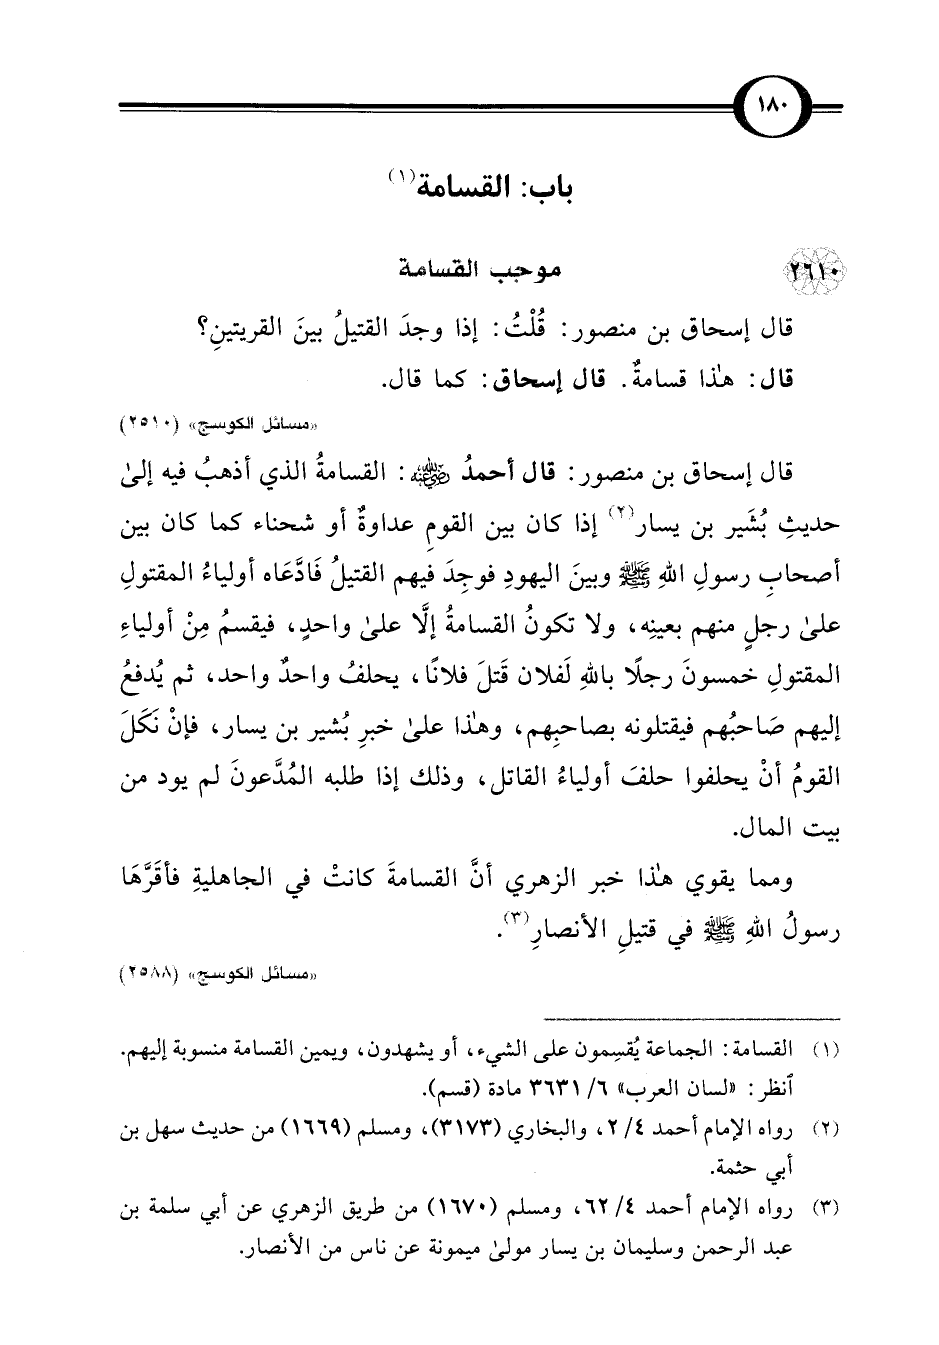 ١٨٠
باب: القسامة(١)
٢٦١٠ موجب القسامة
قال إسحاق بن منصور: قُلْتُ: إذا وجدَ القتيلُ بينَ القريتينِ؟
قال: هٰذا قسامةٌ. قال إسحاق: كما قال.
«مسائل الكوسج» (٢٥١٠)
قال إسحاق بن منصور: قال أحمدُ رضي الله عنه: القسامةُ الذي أذهبُ فيه إلىٰ
حديثِ بُشَير بن يسار(٢) إذا كان بين القومِ عداوةٌ أو شحناء كما كان بين
أصحابِ رسولِ اللهِ ﷺ وبينَ اليهودِ فوجِدَ فيهم القتيلُ فَادَّعَاه أولياءُ المقتولِ
علىٰ رجلٍ منهم بعينِه، ولا تكونُ القسامةُ إلَّا علىٰ واحدٍ، فيقسمُ مِنْ أولياءِ
المقتولِ خمسونَ رجلًا باللهِ لَفلان قَتلَ فلانًا، يحلفُ واحدٌ واحد، ثم يُدفعُ
إليهم صَاحبُهم فيقتلونه بصاحبِهم، وهٰذا علىٰ خبرِ بُشير بن يسار، فإنْ نَكَلَ
القومُ أنْ يحلفوا حلفَ أولياءُ القاتل، وذلك إذا طلبه المُدَّعونَ لم يود من
بيت المال.
ومما يقوي هٰذا خبر الزهري أنَّ القسامةَ كانتْ في الجاهليةِ فأقَرَّهَا
رسولُ اللهِ ﷺ في قتيلِ الأنصارِ(٣).
«مسائل الكوسج» (٢٥٨٨)
(١) القسامة: الجماعة يُقسِمون على الشيء، أو يشهدون، ويمين القسامة منسوبة إليهم.
ٱنظر: «لسان العرب» ٦/ ٣٦٣١ مادة (قسم).
(٢) رواه الإمام أحمد ٤/ ٢، والبخاري (٣١٧٣)، ومسلم (١٦٦٩) من حديث سهل بن
أبي حثمة.
(٣) رواه الإمام أحمد ٤/ ٦٢، ومسلم (١٦٧٠) من طريق الزهري عن أبي سلمة بن
عبد الرحمن وسليمان بن يسار مولىٰ ميمونة عن ناس من الأنصار.